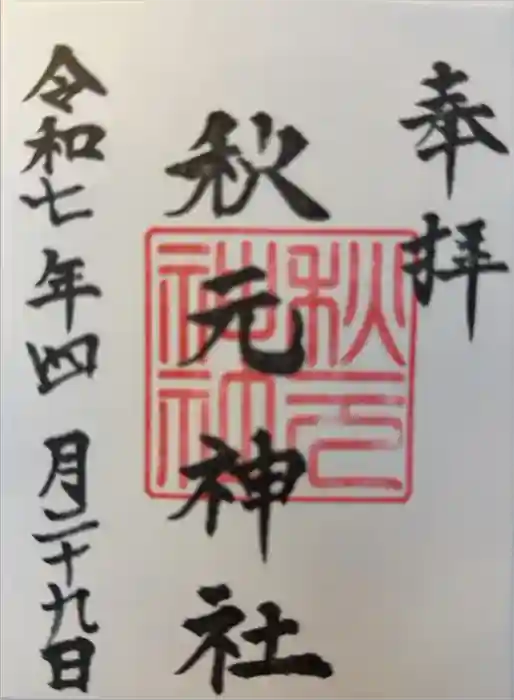 奉拝
秋元神社
秋元神社
令和七年四月二十九日